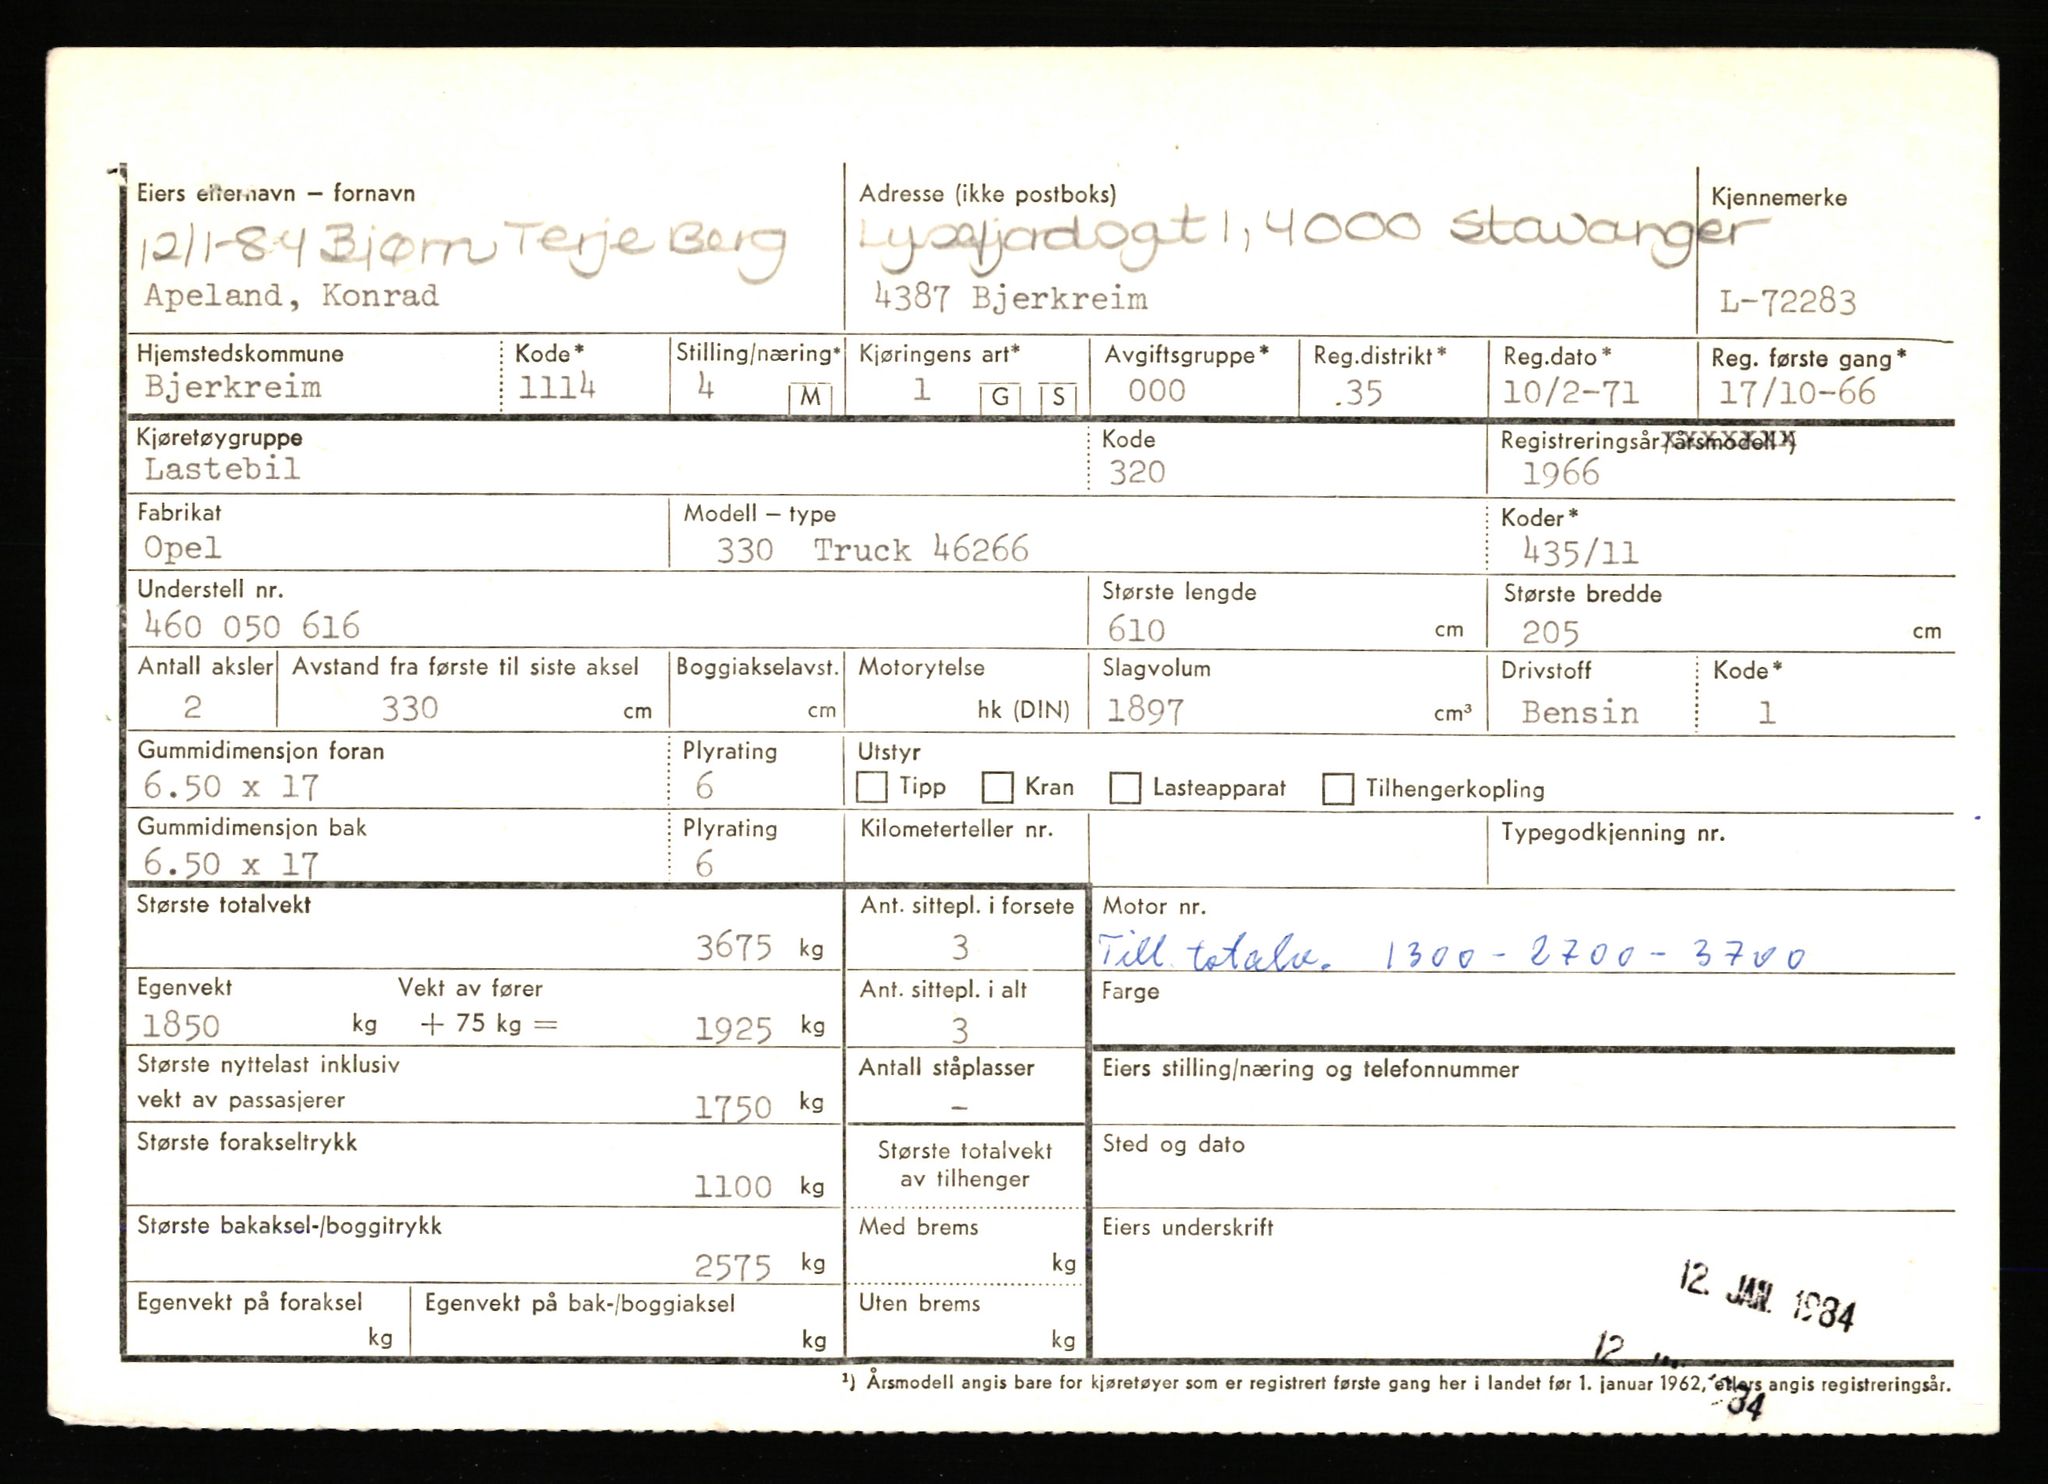 Eiers efternavn – fornavn Adresse (ikke postboks) Kjennemerke
12/1-84 Bjørn Terje Berg 1, 4000 Stavanger
Apeland, Konrad 4387 Bjerkreim L-72283
Hjemstedskommune Kode* Stilling/næring* Kjøringens art* Avgiftsgruppe* Reg.distrikt* Reg.dato* Reg. første gang*
Bjerkreim 1114 4 M 1 G S 000 .35 10/2-71 17/10-66
Kjøretøygruppe Kode Registreringsår/årsmodell ¹)
Lastebil 320 1966
Fabrikat Modell – type Koder*
Opel 330 Truck 46266 435/11
Understell nr. Største lengde Største bredde
460 050 616 610 cm 205 cm
Antall aksler Avstand fra første til siste aksel Boggiakselavst. Motorytelse Slagvolum Drivstoff Kode*
2 330 cm cm hk (DIN) 1897 cm³ Bensin 1
Gummidimensjon foran Plyrating Utstyr
6.50 x 17 6 Tipp Kran Lasteapparat Tilhengerkopling
Gummidimensjon bak Plyrating Kilometerteller nr. Typegodkjenning nr.
6.50 x 17 6
Største totalvekt Ant. sittepl. i forsete Motor nr.
3675 kg 3 Till. totalv. 1300 - 2700 - 3700
Egenvekt Vekt av fører Ant. sittepl. i alt Farge
1850 kg + 75 kg = 1925 kg 3
Største nyttelast inklusiv Antall ståplasser Eiers stilling/næring og telefonnummer
vekt av passasjerer 1750 kg –
Største forakseltrykk Største totalvekt Sted og dato
1100 kg av tilhenger
Største bakaksel-/boggitrykk Med brems Eiers underskrift
2575 kg kg
12. JAN. 1984
Egenvekt på foraksel Egenvekt på bak-/boggiaksel Uten brems
kg kg kg
12
¹) Årsmodell angis bare for kjøretøyer som er registrert første gang her i landet før 1. januar 1962, ellers angis registreringsår.
84